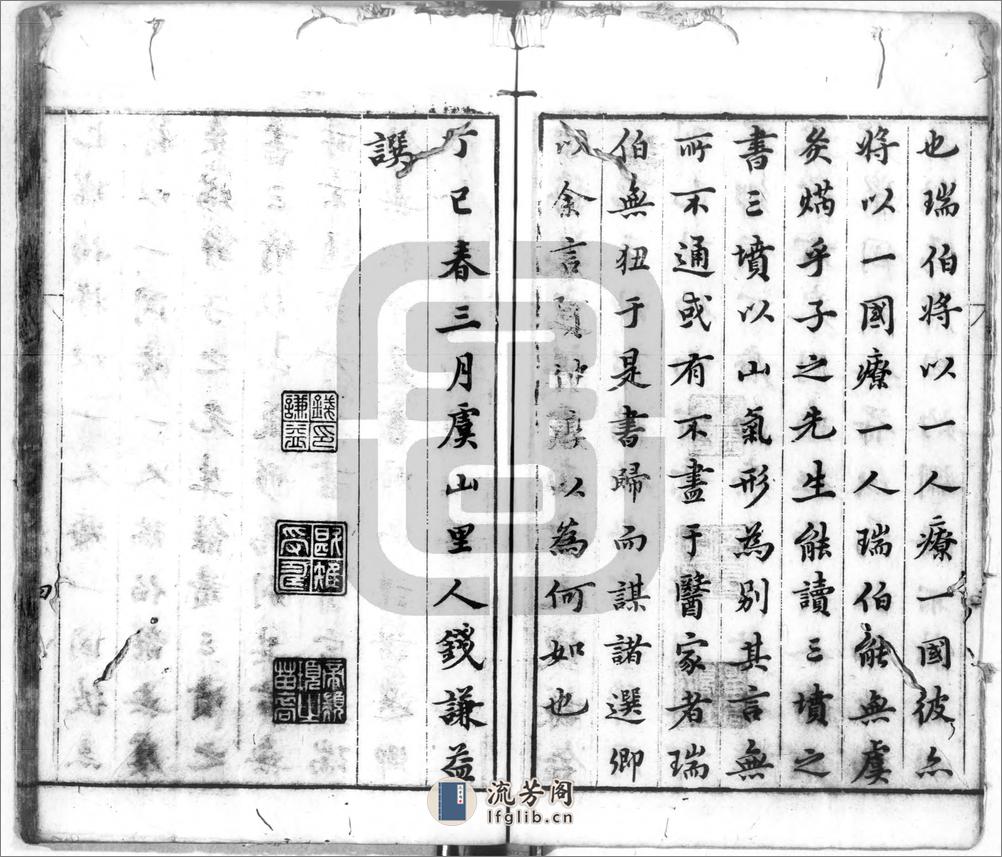 也瑞伯將以一人療一國彼亦
將以一國療一人瑞伯能無虞
矣燐乎子之先生能讀三墳之
書三墳以山氣形為別其言無
所不通或有不盡于醫家者瑞
伯無狃于是書歸而謀諸選卿
以余言質彼處以為何如也
丁巳春三月虞山里人錢謙益
譔
錢謙益印
流芳阁
lfglib.cn